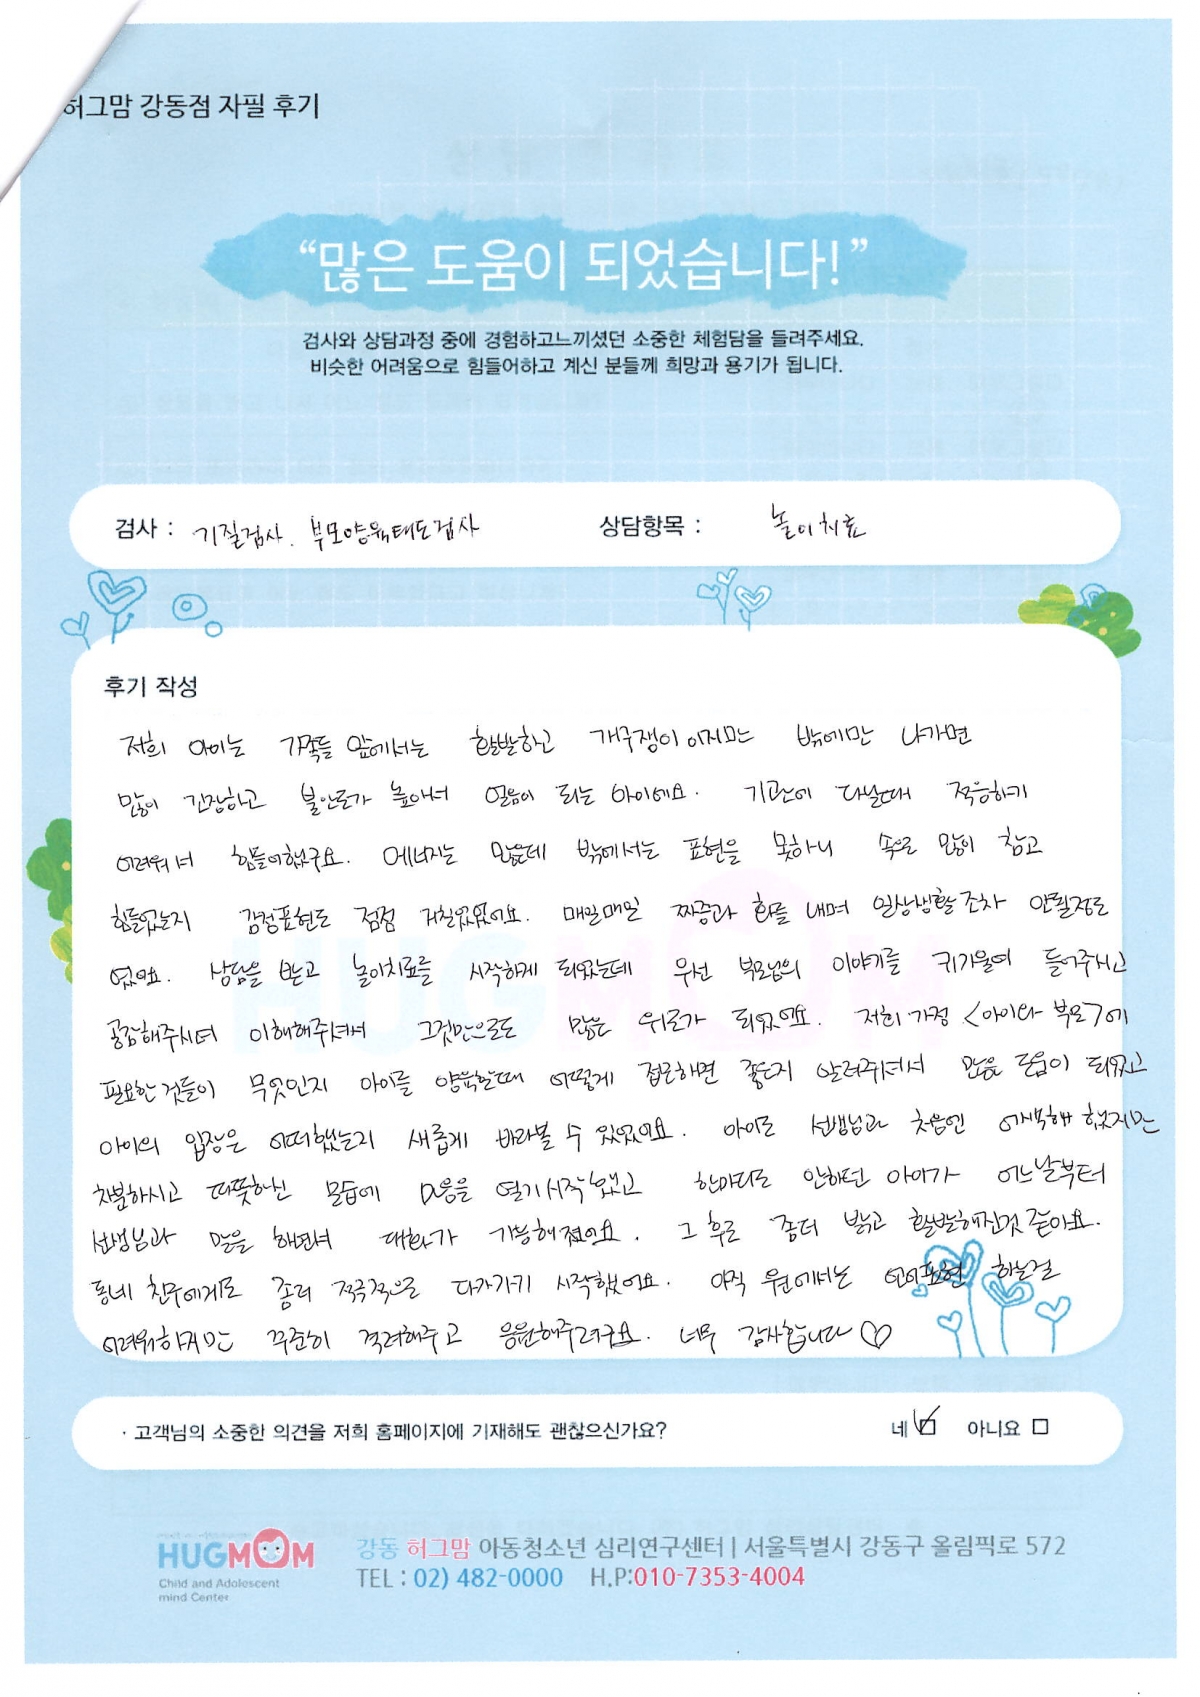 허그맘 강동점 자필 후기
“많은 도움이 되었습니다!”
검사와 상담과정 중에 경험하고느끼셨던 소중한 체험담을 들려주세요.
비슷한 어려움으로 힘들어하고 계신 분들께 희망과 용기가 됩니다.
검사 : 기질검사. 부모양육태도검사 상담항목 : 놀이치료
후기 작성
저희 아이는 가족들 앞에서는 활발하고 개구쟁이이지만 밖에만 나가면
많이 긴장하고 불안도가 높아서 얼음이 되는 아이에요. 기관에 다닐때 적응하기
어려워서 힘들어했구요. 에너지는 많은데 밖에서는 표현을 못하니 속으로 많이 참고
힘들었는지 감정표현도 점점 거칠었었어요. 매일매일 짜증과 화를 내며 일상생활조차 안될정도
였어요. 상담을 받고 놀이치료를 시작하게 되었는데 우선 부모님의 이야기를 귀기울여 들어주시고
공감해주시며 이해해주셔서 그것만으로도 많은 위로가 되었어요. 저희 가정 <아이와 부모>에
필요한 것들이 무엇인지 아이를 양육할때 어떻게 접근하면 좋은지 알려주셔서 많은 도움이 되었고
아이의 입장은 어떠했는지 새롭게 바라볼 수 있었어요. 아이도 선생님과 처음엔 어색해 했지만
차분하시고 따뜻하신 모습에 마음을 열기시작했고 한마디도 안하던 아이가 어느날부터
선생님과 말을 하면서 대화가 가능해졌어요. 그 후로 좀더 밝고 활발해진것 같아요.
동네 친구에게도 좀더 적극적으로 다가가기 시작했어요. 아직 원에서는 언어표현 하는걸
어려워하지만 꾸준히 격려해주고 응원해주려구요. 너무 감사합니다 ♡
· 고객님의 소중한 의견을 저희 홈페이지에 기재해도 괜찮으신가요? 네 ☑ 아니요 □
HUGMOM
Child and Adolescent
mind Center
강동 허그맘 아동청소년 심리연구센터 | 서울특별시 강동구 올림픽로 572
TEL : 02) 482-0000 H.P:010-7353-4004